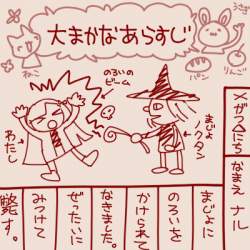 大まかなあらすじ
ねこ
うさぎ
パン
りんご
のろいの
ビーム
わたし
まじょ
クタン
なまえ ナル
まじょに
のろいを
かけられて
なきました。
ぜったいに
みつけて
斃す。